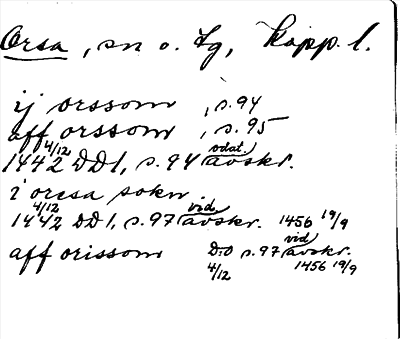 Orsa, sn o. tg, Kopp. l.
ij orssom, s. 94
aff orssom, s. 95
4/12 odat.
1442 DD1, s. 94 avskr.
i orssa sokn
4/12 vid.
1442 DD1, s. 97 avskr. 1456 19/9
aff orissom D:o s. 97 vid. avskr.
4/12 1456 19/9